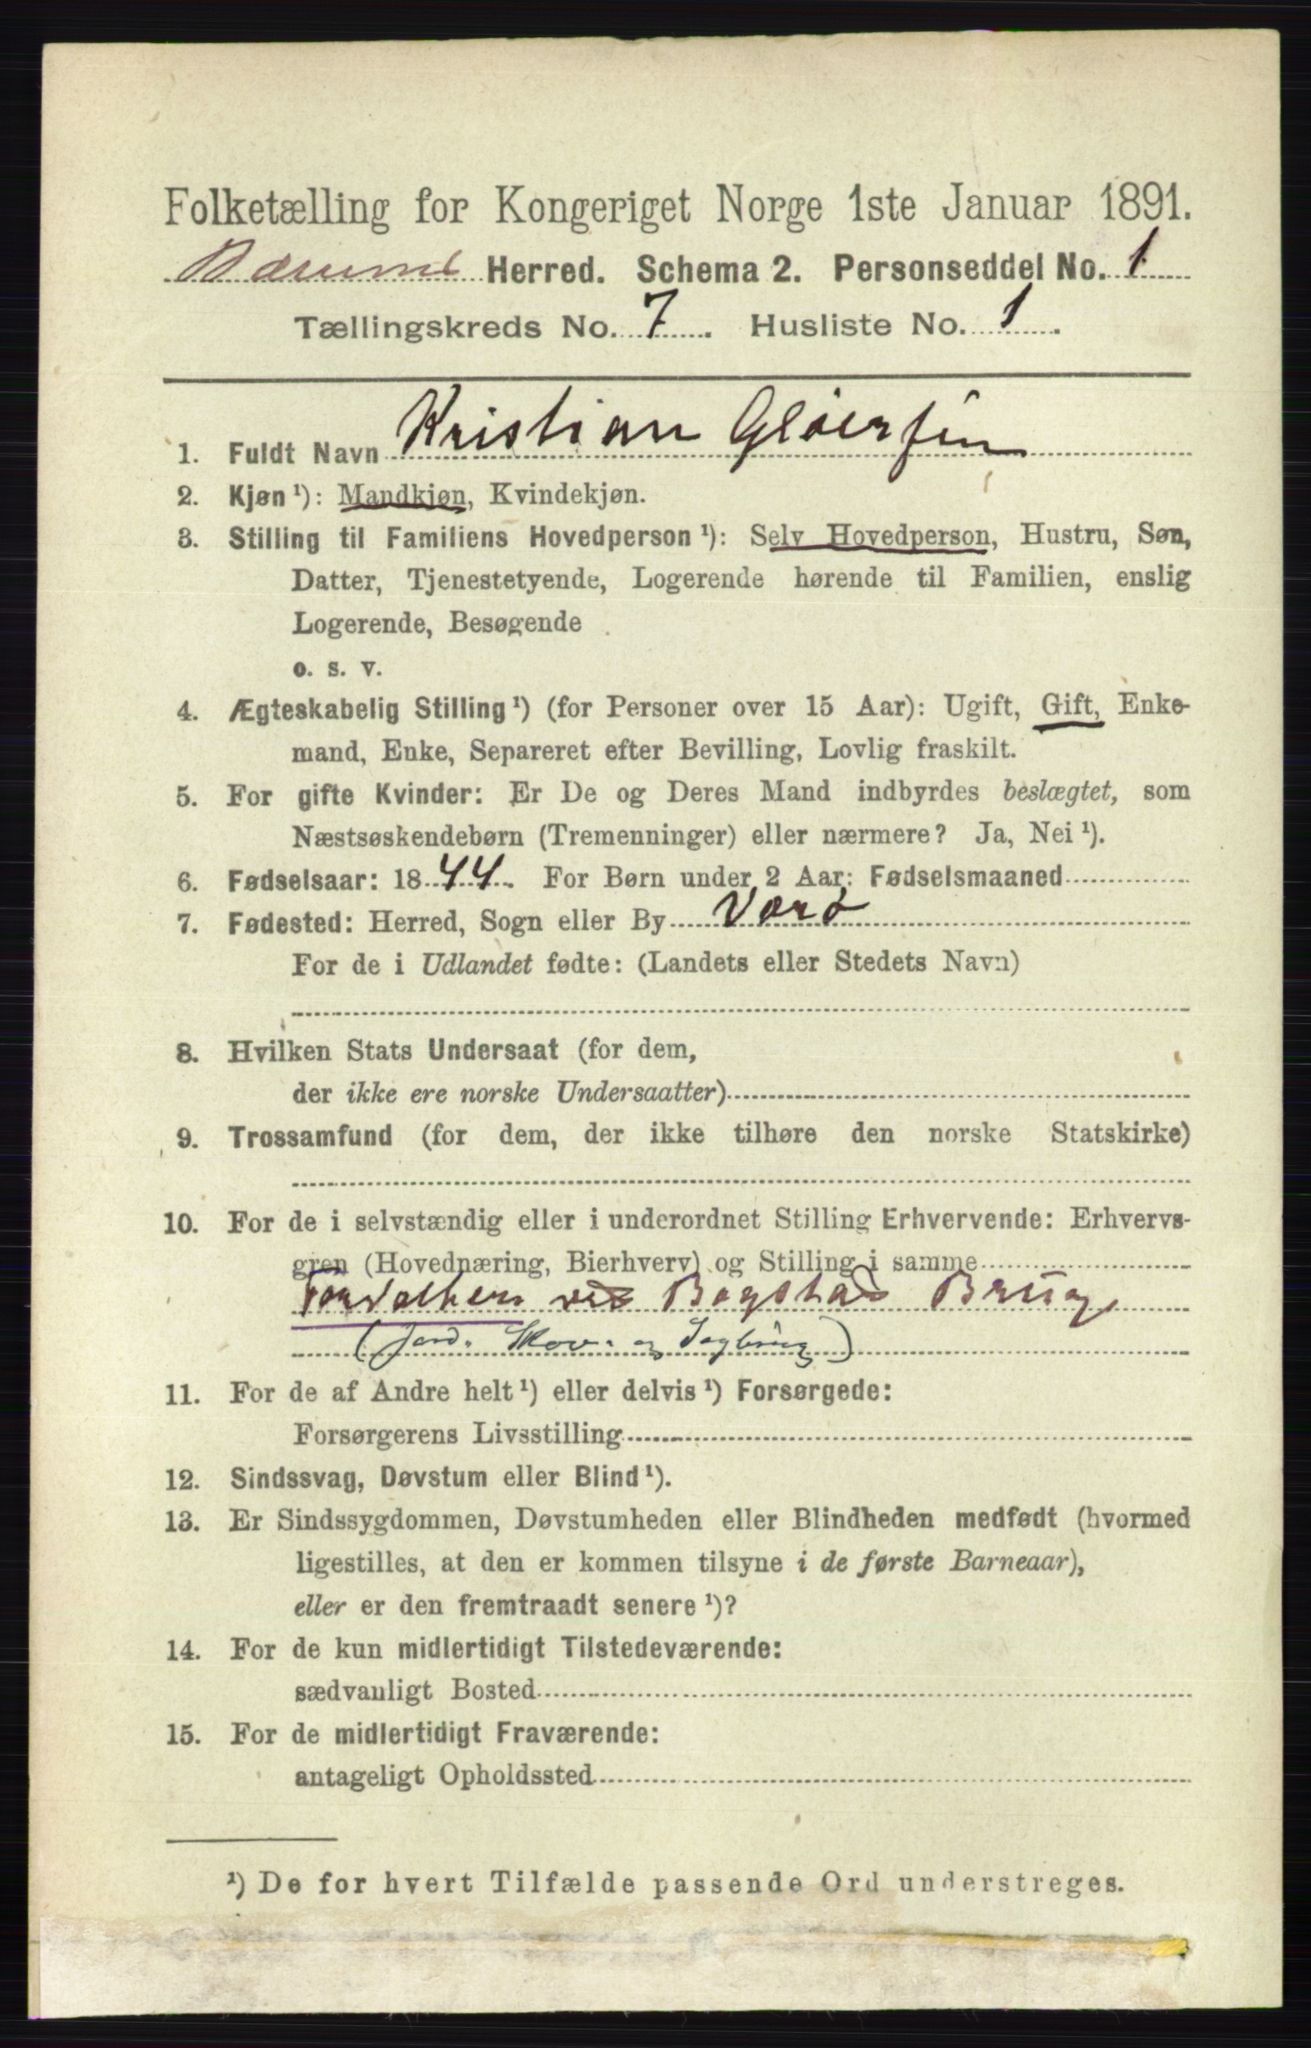 Folketælling for Kongeriget Norge 1ste Januar 1891.
Bærums Herred. Schema 2. Personseddel No. 1
Tællingskreds No. 7. Husliste No. 1.
1. Fuldt Navn Kristian Gløersen
2. Kjøn ¹): Mandkjøn, Kvindekjøn.
3. Stilling til Familiens Hovedperson ¹): Selv Hovedperson, Hustru, Søn,
Datter, Tjenestetyende, Logerende hørende til Familien, enslig
Logerende, Besøgende
o. s. v.
4. Ægteskabelig Stilling ¹) (for Personer over 15 Aar): Ugift, Gift, Enke-
mand, Enke, Separeret efter Bevilling, Lovlig fraskilt.
5. For gifte Kvinder: Er De og Deres Mand indbyrdes beslægtet, som
Næstsøskendebørn (Tremenninger) eller nærmere? Ja, Nei ¹).
6. Fødselsaar: 1844. For Børn under 2 Aar: Fødselsmaaned
7. Fødested: Herred, Sogn eller By Værø
For de i Udlandet fødte: (Landets eller Stedets Navn)
8. Hvilken Stats Undersaat (for dem,
der ikke ere norske Undersaatter)
9. Trossamfund (for dem, der ikke tilhøre den norske Statskirke)
10. For de i selvstændig eller i underordnet Stilling Erhvervende: Erhvervs-
gren (Hovednæring, Bierhverv) og Stilling i samme
Forvalter ved Bogstad Brug
(Jord- Skov- og Sagbrug)
11. For de af Andre helt ¹) eller delvis ¹) Forsørgede:
Forsørgerens Livsstilling
12. Sindssvag, Døvstum eller Blind ¹).
13. Er Sindssygdommen, Døvstumheden eller Blindheden medfødt (hvormed
ligestilles, at den er kommen tilsyne i de første Barneaar),
eller er den fremtraadt senere ¹)?
14. For de kun midlertidigt Tilstedeværende:
sædvanligt Bosted
15. For de midlertidigt Fraværende:
antageligt Opholdssted
¹) De for hvert Tilfælde passende Ord understreges.